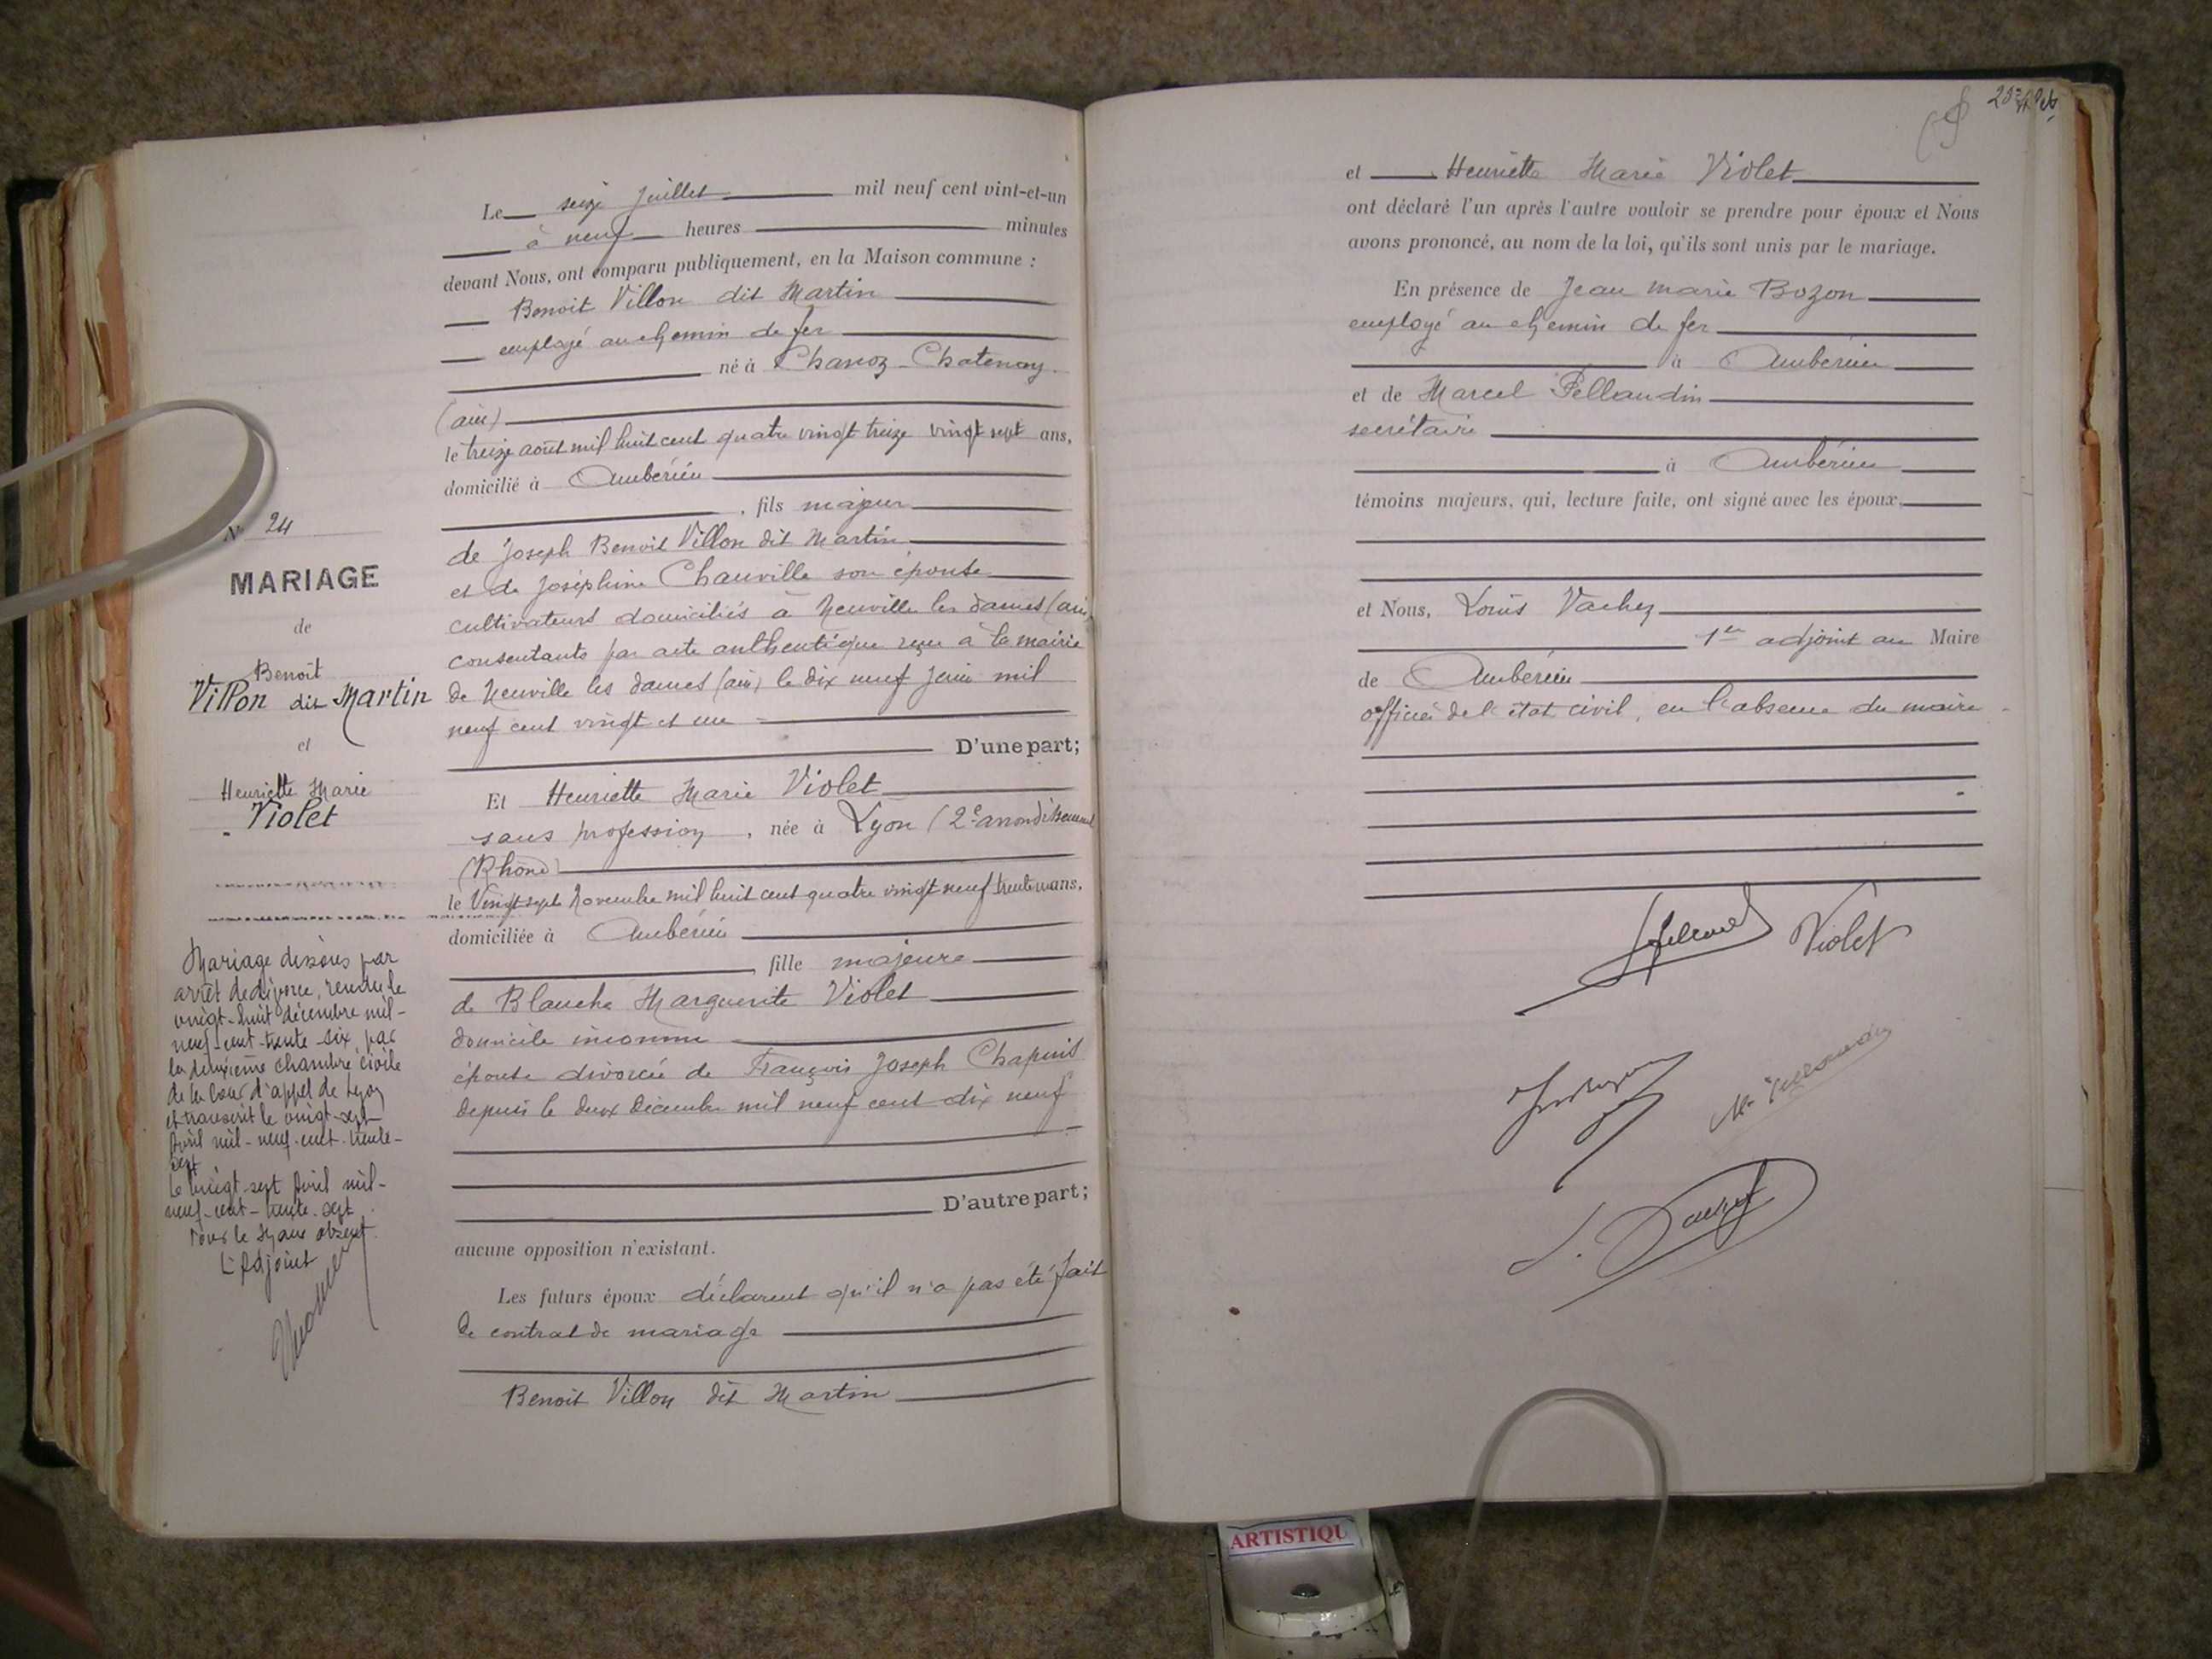 N° 24
MARIAGE
de
Benoit
Villon dit Martin
et
Henriette Marie
Violet
Mariage dissous par
arrêt de divorce, rendu le
vingt-huit décembre mil-
neuf-cent-trente-six, par
la deuxième chambre civile
de la Cour d'appel de Lyon
et transcrit le vingt-sept
Avril mil-neuf-cent-trente-
sept
Le vingt-sept Avril mil-
neuf-cent-trente-sept
Pour le Maire absent
L'Adjoint
Le seize Juillet mil neuf cent vint-et-un
à neuf heures minutes
devant Nous, ont comparu publiquement, en la Maison commune :
Benoit Villon dit Martin
employé au chemin de fer
né à Chanoz-Chatenay
(ain)
le treize août mil huit cent quatre vingt treize vingt sept ans,
domicilié à Ambérieu
, fils majeur
de Joseph Benoit Villon dit Martin
et de Joséphine Chauville son épouse
cultivateurs domiciliés à Neuville les dames (ain)
consentants par acte authentique reçu à la mairie
de Neuville les dames (ain) le dix neuf Juin mil
neuf cent vingt et un
D'une part;
Et Henriette Marie Violet
sans profession, née à Lyon (2e arrondissement
(Rhône)
le Vingt sept Novembre mil huit cent quatre vingt neuf trente un ans,
domiciliée à Ambérieu
, fille majeure
de Blanche Marguerite Violet
domicile inconnu
épouse divorcée de François Joseph Chapuis
depuis le deux décembre mil neuf cent dix neuf
D'autre part;
aucune opposition n'existant.
Les futurs époux déclarent qu'il n'a pas été fait
de contrat de mariage
Benoit Villon dit Martin
et Henriette Marie Violet
ont déclaré l'un après l'autre vouloir se prendre pour époux et Nous
avons prononcé, au nom de la loi, qu'ils sont unis par le mariage.
En présence de Jean marie Bozon
employé au chemin de fer
à Ambérieu
et de Marcel Pellaudin
secrétaire
à Ambérieu
témoins majeurs, qui, lecture faite, ont signé avec les époux,
et Nous, Louis Vachez
1er adjoint au Maire
de Ambérieu
officier de l'état civil, en l'absence du maire
Violet
ARTISTIQU